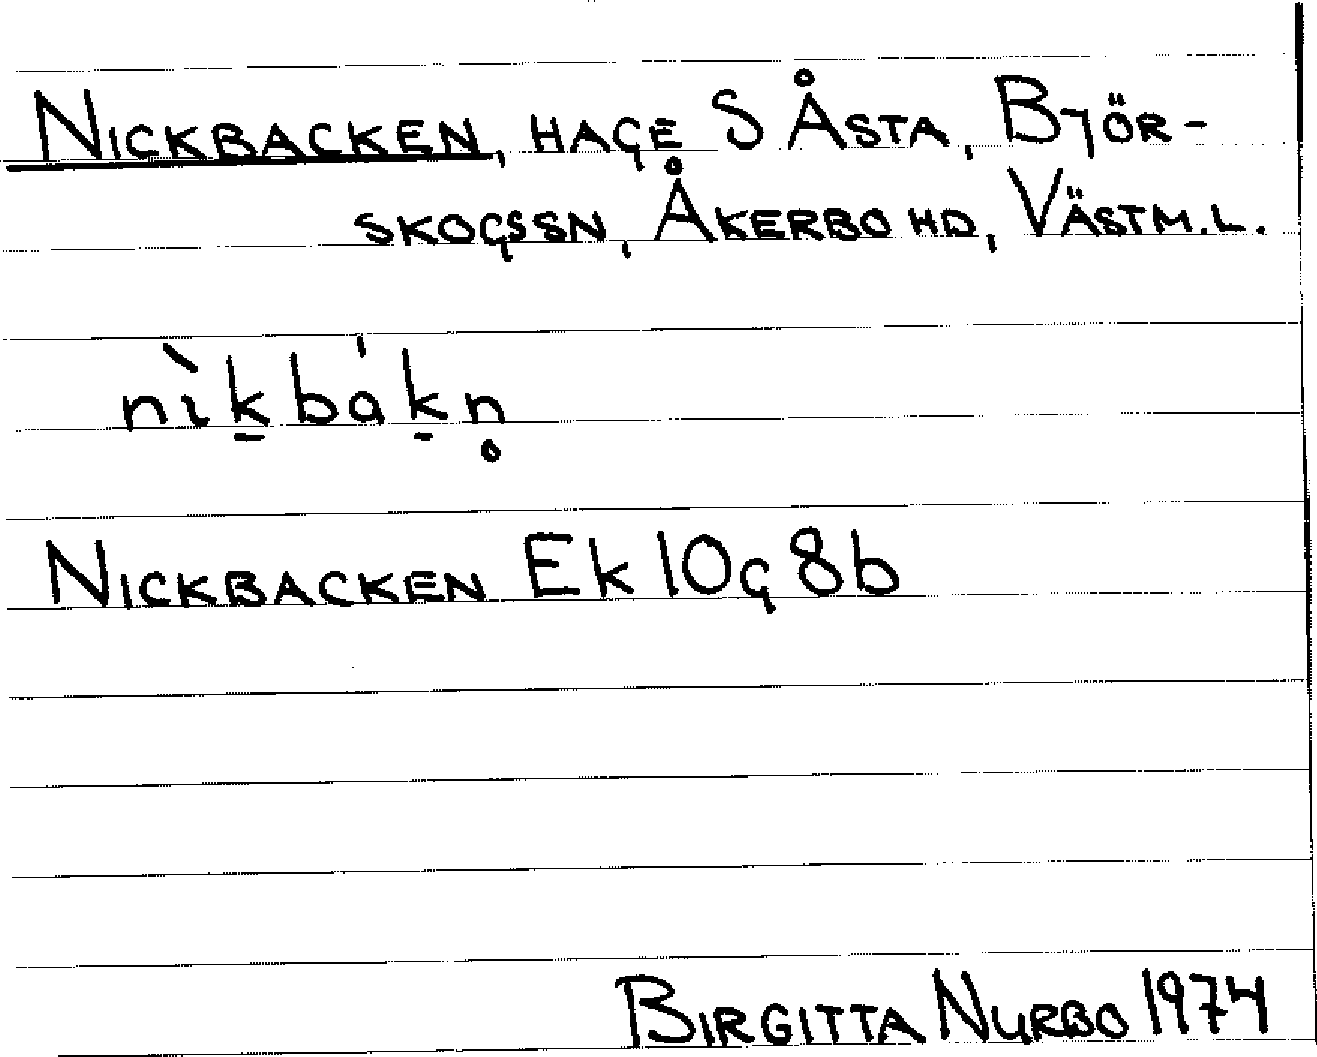 NICKBACKEN, HAGE S ÅSTA, BJÖR-
SKOGSSN, ÅKERBO HD, VÄSTM.L.
nìk̠bák̠n̥
NICKBACKEN Ek 10g 8b
BIRGITTA NYRBO 1974